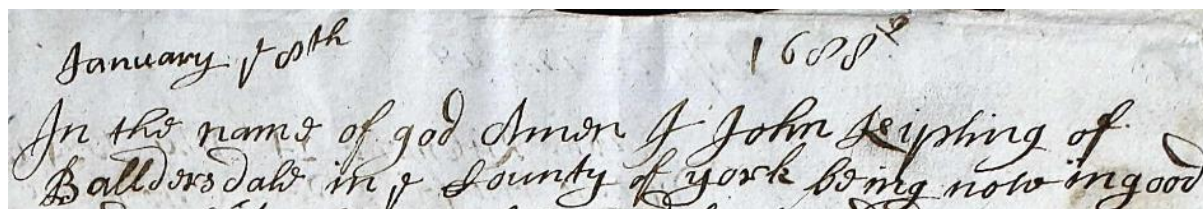 January ye 8th 1688/9
In the name of god Amen I John Keipling of
Balldersdale in ye County of york being now in good